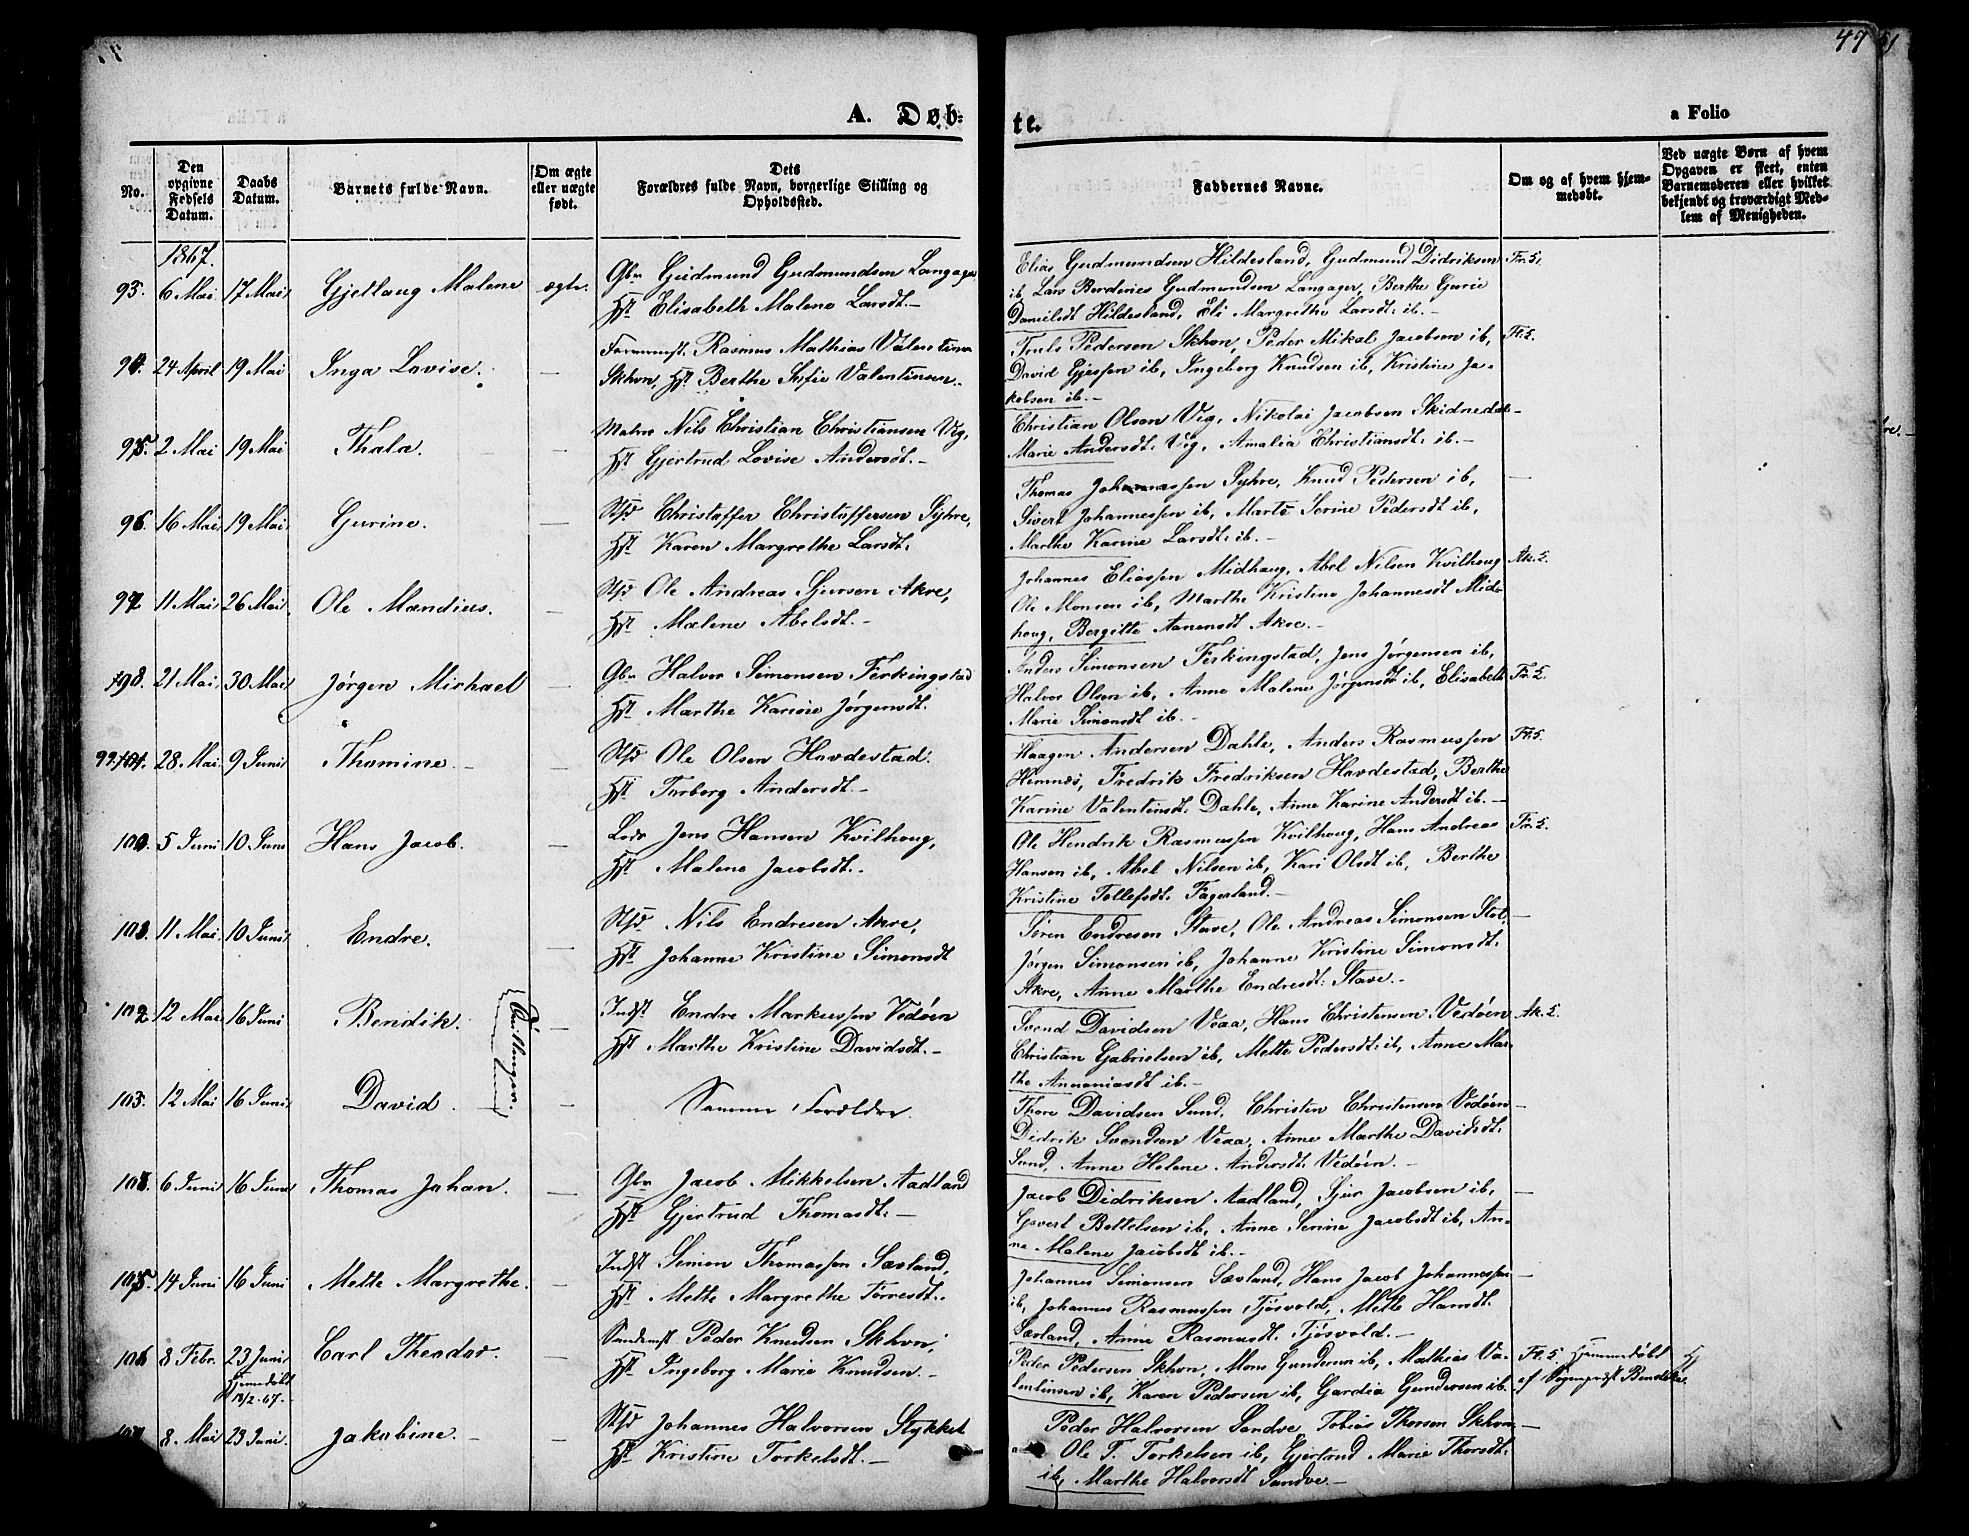 47
A. Døb-
te.
a Folio
No.
Den opgivne Fødsels Datum.
Daabs Datum.
Barnets fulde Navn.
Om ægte eller uægte født.
Dets Forældres fulde Navn, borgerlige Stilling og Opholdssted.
Faddernes Navne.
Om og af hvem hjemmedøbt.
Ved uægte Børn af hvem Opgaven er skeet, enten Barnemoderen eller hvilket bekjendt og troværdigt Medlem af Menigheden.
1867.
93. 6 Mai 17 Mai Gjetlaug Malene ægte. Gbr Gudmund Gudmundsen Langager
Hst Elisabeth Malene Larsdt. —
Elias Gudmundsen Hildesland, Gudmund Didriksen
ib, Lars Berdines Gudmundsen Langager, Berthe Gurie
Danielsdt Hildesland, Eli Margrethe Larsdt. ib. —
94. 24 April 19 Mai Inga Lovise. — Rasmus Mathias Valentinsen
Skhvn, Hst. Berthe Sofie Valentinsen.
Truls Pedersen Skhvn, Peder Mikal Jacobsen ib,
David Gjessen ib, Ingeborg Knudsen ib, Kristine Ja-
kobsen ib. —
95. 2 Mai 19 Mai Thala. — Nils Christian Christiansen Vig,
Hst. Gjertrud Lovise Andersdt. —
Christian Olsen Vig, Nikolai Jacobsen
Marie Andersdt. Vig, Amalia Christiansdt. ib. —
96. 16 Mai 19 Mai Gurine. — Christaffer Christaffersen Syhre,
Hst. Karen Margrethe Larsdt.
Thomas Johannessen Syhre, Knud Pedersen ib,
Sivert Johannessen ib, Marte Serine Pedersdt ib,
Marthe Karine Larsdt. ib. —
97 11 Mai 26 Mai Ole Mandius. — Ole Andreas Sjursen Akre,
Hst. Malene Abelsdt. —
Johannes Eliassen Midhaug, Abel Nilsen Kvilhaug
Ole Monsen ib, Marthe Kristine Johannesdt Mid-
haug, Bergitte Aanensdt Akre. —
98. 21 Mai 30 Mai Jørgen Michael — Gbr Halvor Simonsen Ferkingstad
Hst. Marthe Karine Jørgensdt.
Anders Simonsen Ferkingstad, Jens Jørgensen ib,
Halvor Olsen ib, Anne Malene Jørgensdt ib, Elisabeth
Marie Simonsdt ib. —
99. 28 Mai 9 Juni Thomine. — Ole Olsen Havdestad.
Hst. Torborg Andersdt. —
Haagen Andersen Dahle, Anders Rasmussen
Hemnes, Fredrik Fredriksen Havdestad, Berthe
Karine Valentinsdt. Dahle, Anne Karine Andersdt ib. —
100. 5 Juni 10 Juni Hans Jacob. — Jens Hansen Kvilhaug,
Hst. Malene Jacobsdt.
Ole Hendrik Rasmussen Kvilhaug, Hans Andreas
Hansen ib, Abel Nilsen ib, Kari Olsdt ib, Berthe
Kristine Tollefsdt. Fagerland. —
101. 11 Mai 10 Juni Endre. — Nils Endresen Akre,
Hst. Johanne Kristine Simonsdt
Søren Endresen Stave, Ole Andreas Simonsen Stol,
Jørgen Simonsen ib, Johanne Kristine Simonsdt.
Akre, Anne Marthe Endresdt. Stave. —
102. 12 Mai 16 Juni Bendik. — Indst Endre Markussen Vedøen
Hst. Marthe Kristine Davidsdt. —
Svend Davidsen Veaa, Hans Christensen Vedøen
Christian Gabrielsen ib, Mette Pedersdt. ib, Anne Mar-
the Annaniasdt ib. —
Tvillinger.
103. 12 Mai 16 Juni David. — Samme Forældre.
Thore Davidsen Sund, Christen Christensen Vedøen
Didrik Svendsen Veaa, Anne Marthe Davidsdt.
Sund, Anne Helene Andersdt. Vedøen. —
104. 6 Juni 16 Juni Thomas Johan. — Gbr Jacob Mikkelsen Aadland
Hst. Gjertrud Thomasdt. —
Jacob Didriksen Aadland, Sjur Jacobsen ib,
Govert Bottelsen ib, Anne Serine Jacobsdt ib, An-
ne Malene Jacobsdt ib. —
105. 14 Juni 16 Juni Mette Margrethe. — Indst Simon Thomassen Sævland,
Hst. Mette Margrethe Torresdt.
Johannes Simonsen Sævland, Hans Jacob Johannessen
ib, Johannes Rasmussen Tjøsvold, Mette Hansdt.
Sævland, Anne Rasmusdt. Tjøsvold. —
106 8 Febr. 23 Juni Carl Theodor. — Peder Knudsen Skhvn,
Hjemmedøbt 13/2-67.
Hst. Ingeborg Marie Knudsen. —
Peder Pedersen Skhvn, Mons Gundersen ib, Mathias Va-
lentinsen ib, Karen Pedersen ib, Gardia Gundersen ib. —
Hjemmedøbt
af Sognepræst
8. Mai 23 Juni. Jakobine. — Johannes Halvorsen Stykket
Hst. Kristine Torkelsdt. —
Peder Halvorsen Sandve, Tobias Thorsen Skhvn
Ole T. Torkelsen ib, Gjertrud Marie Thorsdt.
ib, Marthe Halvorsdt Sandve. —